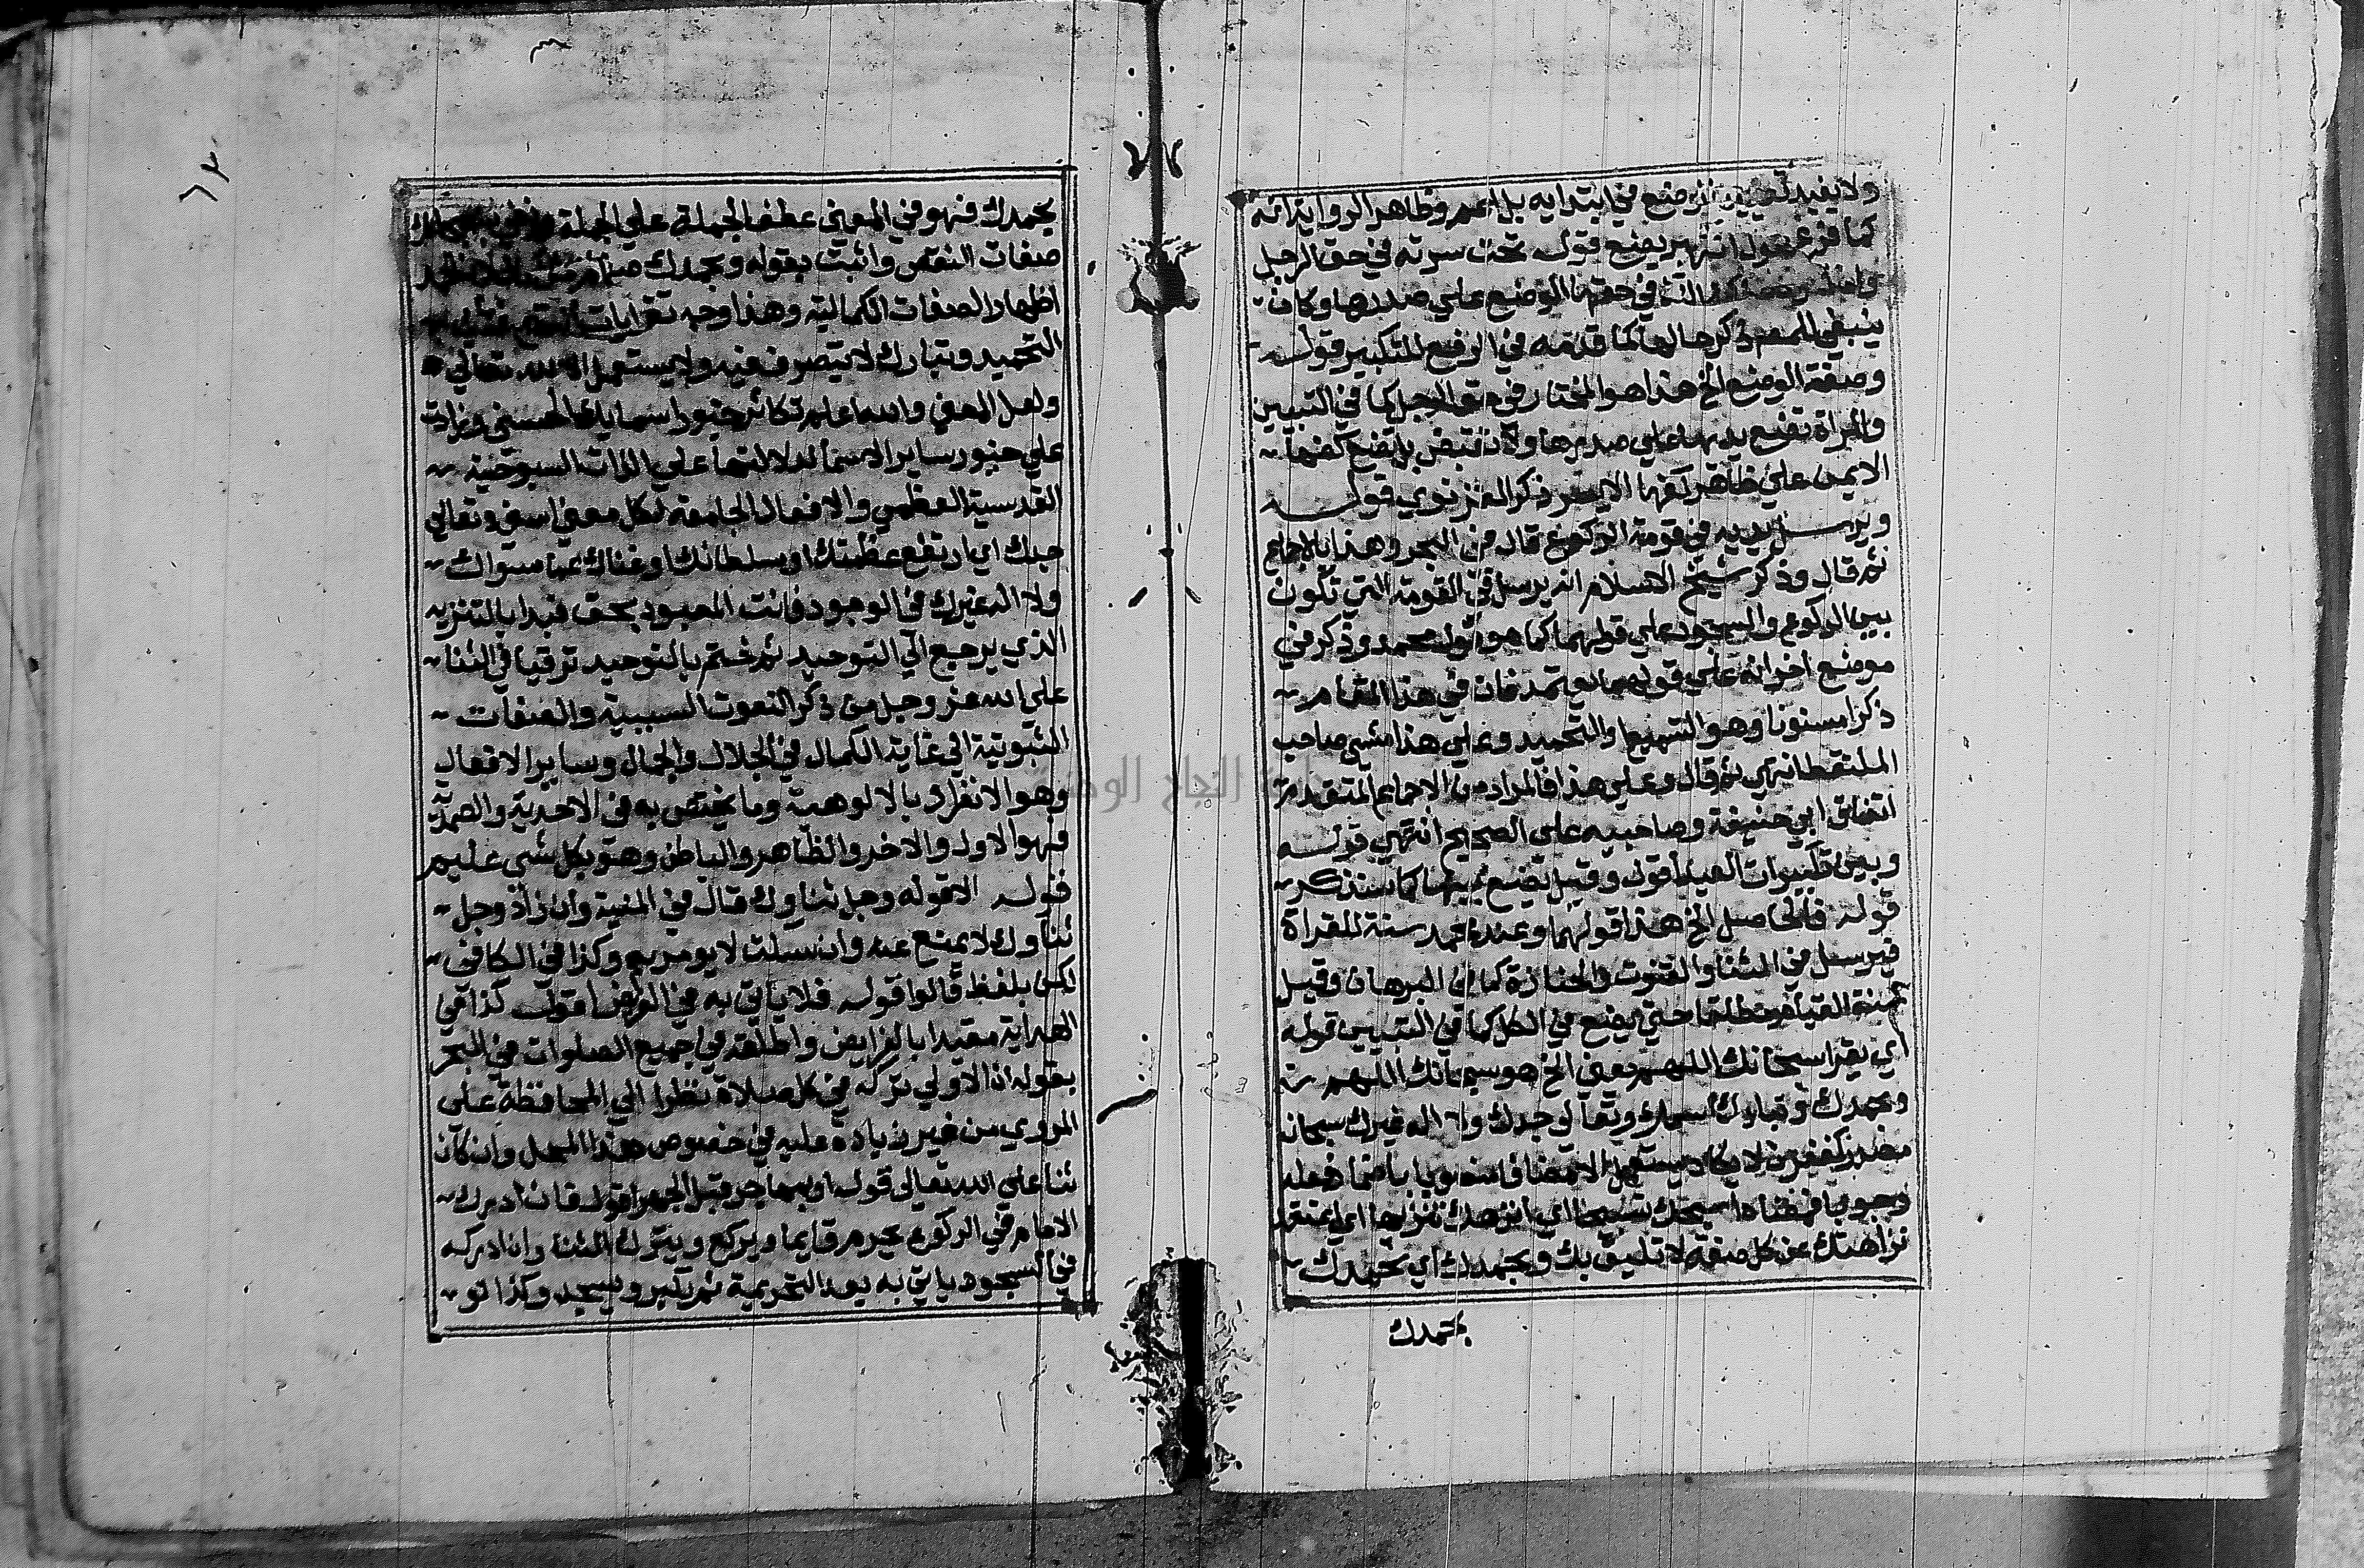 ولا يفيد وضع في ابتدايه بل اعم وظاهر الروايه انه
كما فرغ يضع قوله تحت سرته في حق الرجل
في حقها الوضع علي صدرها وكان
ينبغي للمصم ذكر حالها كما قدمه في الرفع للتكبير قوله
وصفة الوضع الخ هذا هو المختار في حق الرجل كما في التبيين
والمراة تضع يديها علي صدرها ولا تقبض بل تضع كفها
الايمن علي ظاهر كفها الايسر ذكر الغزنوي قوله
ويرسل يديه في قومة الركوع قال في البحر وهذا بالاجماع
ثم قال وذكر شيخ الاسلام انه يرسل في القومة التي تكون
بين الركوع والسجود علي قولهما كما هو قول محمد وذكر في
موضع اخر انه علي قولهما يعتمد فان في هذا القيام
ذكرا مسنونا وهو التسميع والتحميد وعلي هذا مشي صاحب
الملتقط انتهي ثم قال وعلي هذا فالمراد من الاجماع المتقدم
اتفاق ابي حنيفة وصاحبيه علي الصحيح انتهي قوله
وبين تكبيرات العيد اقول وقيل يضع بينها كما سنذكر
قوله فالحاصل الخ هذا قولهما وعند محمد سنة للقراة
فيرسل في الثنا والقنوت والجنازة كما في البرهان وقيل
سنة القيام مطلقا حتي يضع في الكل كما في التبيين قوله
اي يقرا سبحانك اللهم يعني الخ هو سبحانك اللهم
وبحمدك وتبارك اسمك وتعالي جدك ولا اله غيرك سبحانه
مصدر كغفران لا يكاد يستعمل الا مضافا منصوبا باضمار فعله
وجوبا فمعناه اسبحك تسبيحا اي انزهك تنزيها اي اعتقد
نزاهتك عن كل صفة لا تليق بك وبحمدك اي نحمدك
بحمدك
٦٣
بحمدك فهو في المعني عطف الجملة علي الجملة
صفات النقص واثبت بقوله وبحمدك
اظهار الصفات الكمالية وهذا وجه
التحميد وتبارك لا يتصرف فيه ولا يستعمل الا لله تعالي
ولعل المعني والله اعلم تكاثر خيور اسمايك الحسني وزادت
علي خيور ساير الاسما لدلالتها علي الذات السبوحية
القدسية العظمي والافعال الجامعة لكل معني اسني وتعالي
جدك اي ارتفع عظمتك او سلطانك او غناك عما سواك
ولا اله غيرك في الوجود فانت المعبود بحق فبدا بالتنزيه
الذي يرجع الي التوحيد ثم ختم بالتوحيد ترقيا في الثنا
علي الله عز وجل من ذكر النعوت السببية والصفات
الثبوتية الي غاية الكمال في الجلال والجمال وساير الافعال
وهو الانفراد بالالوهية وما يختص به في الاحدية والصمدية
فهو الاول والاخر والظاهر والباطن وهو بكل شي عليم
قوله الا قوله وجل ثناوك قال في المنية وان زاد وجل
ثناوك لا يمنع عنه وان سكت لا يومر به وكذا في الكافي
لكن بلفظ قالوا قوله فلا ياتي به في الفرض اقول كذا في
الهداية مقيدا بالفرايض واطلقه في جميع الصلوات في البحر
بقوله ان الاولي تركه في كل صلاة نظرا الي المحافظة علي
المروي من غير زيادة عليه في خصوص هذا المحل وان كان
ثنا علي الله تعالي قوله اقول فان ادرك
الامام في الركوع يحرم قايما ويركع ويترك الثنا وان ادركه
في السجود ياتي به بعد التحريمة ثم يكبر ويسجد وكذا لو